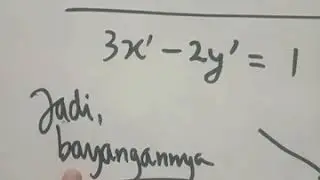 3x' - 2y' = 1
Jadi,
bayangannya